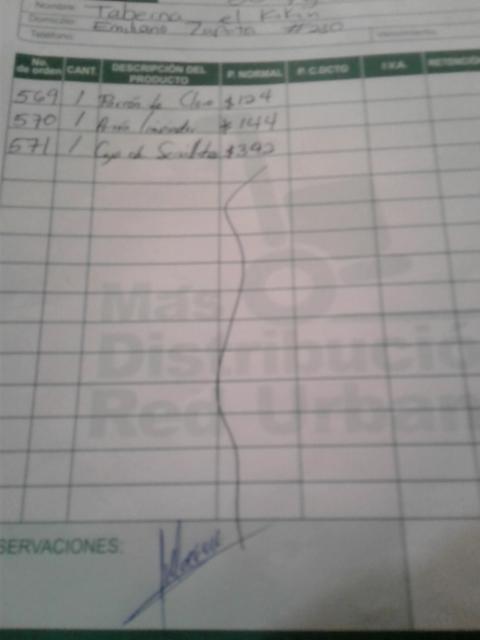 Nombre: Taberna el Kikin
Domicilio: Emiliano Zapata #230
Teléfono:
No. de orden CANT. DESCRIPCIÓN DEL PRODUCTO P. NORMAL P. C.DCTO I.V.A. RETENCIÓ
569 1 de Cloro $124
570 1 $144
571 1 Caja de $392
Más
Distribució
Red Urban
SERVACIONES: